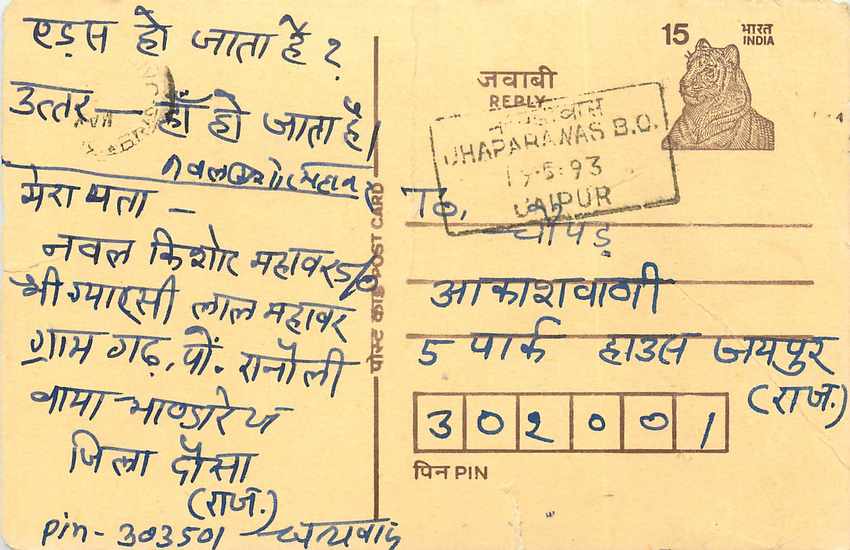 एड्स हो जाता है?
उत्तर — हाँ हो जाता है।
नवल किशोर महावर
मेरा पता —
नवल किशोर महावर S/o
श्री ग्यारसी लाल महावर
ग्राम गढ़, पों. रानौली
वाया भाण्डारेज
जिला दौसा
(राज.)
pin - 303501 धन्यवाद
पोस्ट कार्ड POST CARD
15 भारत
INDIA
जवाबी
REPLY
JHAPARANAS B.O.
5.93
JAIPUR
To,
चौपड़
आकाशवाणी
5 पार्क हाउस जयपुर
(राज.)
302001
पिन PIN